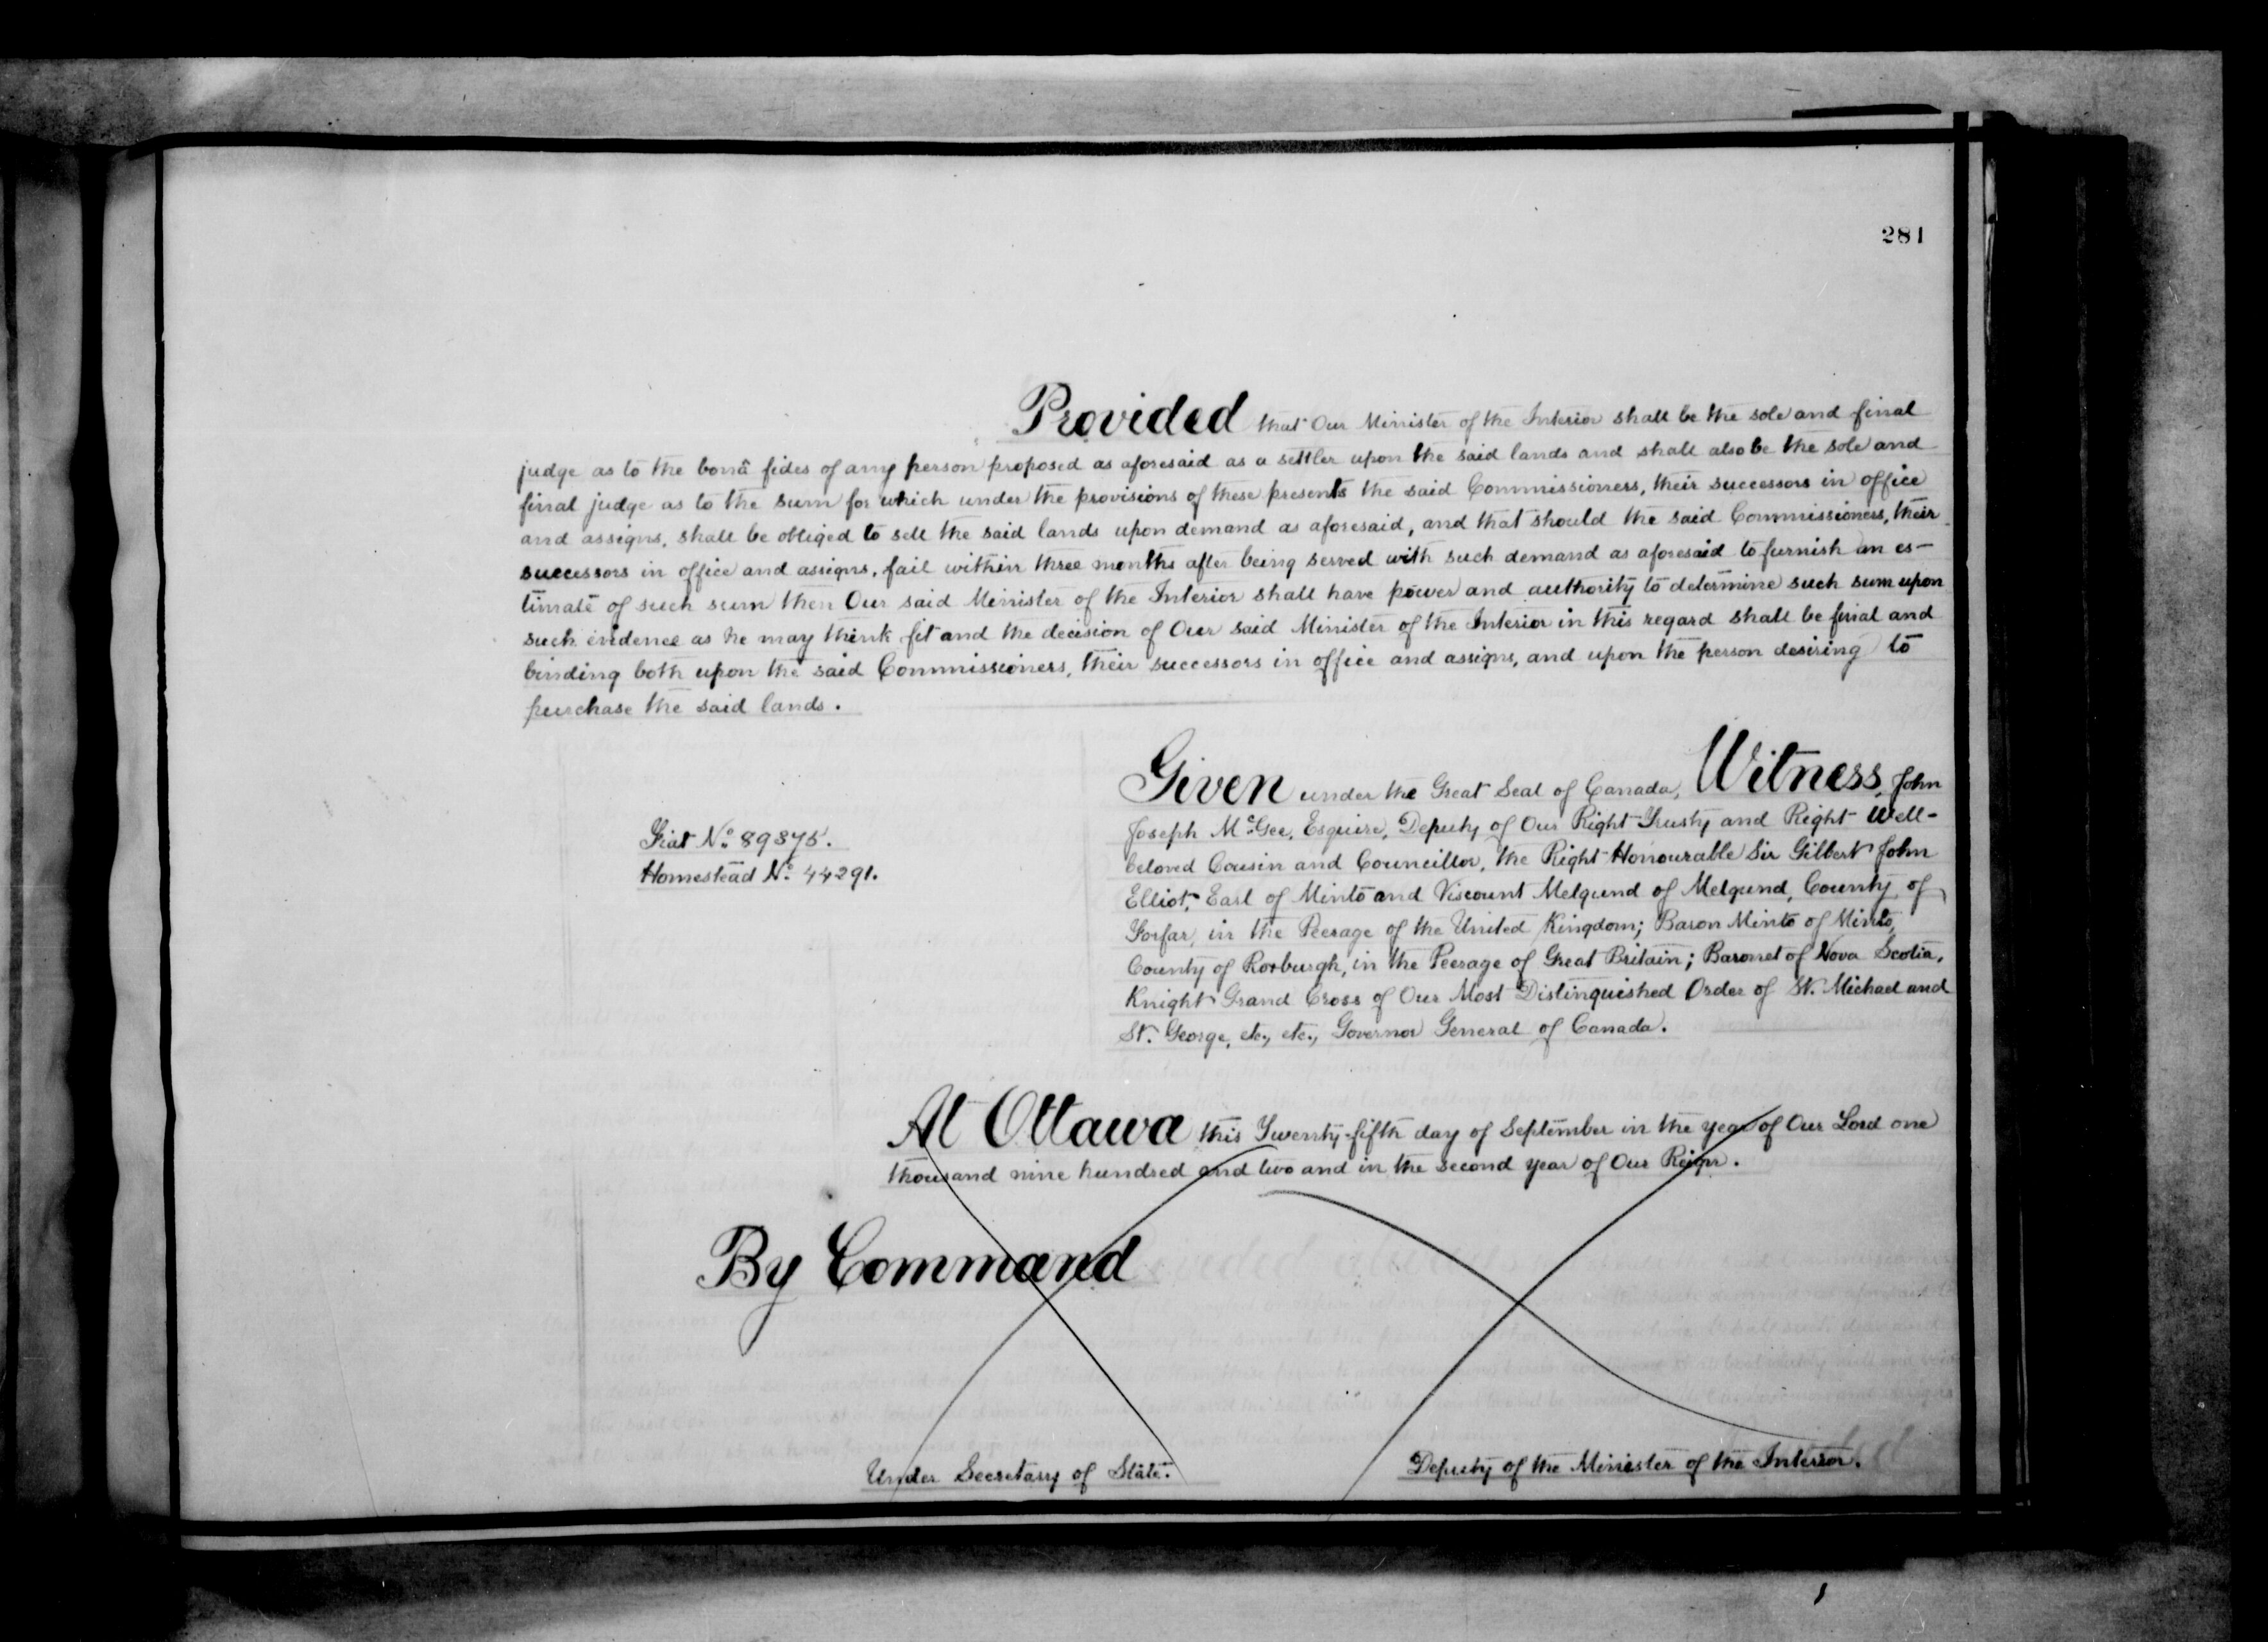 281
Provided that Our Minister of the Interior shall be the sole and final
judge as to the bonâ fides of any person proposed as aforesaid as a settler upon the said lands and shall also be the sole and
final judge as to the sum for which under the provisions of these presents the said Commissioners, their successors in office
and assigns, shall be obliged to sell the said lands upon demand as aforesaid, and that should the said Commissioners, their
successors in office and assigns, fail within three months after being served with such demand as aforesaid to furnish an es-
timate of such sum then Our said Minister of the Interior shall have power and authority to determine such sum upon
such evidence as he may think fit and the decision of Our said Minister of the Interior in this regard shall be final and
binding both upon the said Commissioners, their successors in office and assigns, and upon the person desiring to
purchase the said lands.
Given under the Great Seal of Canada, Witness, John
Joseph McGee, Esquire, Deputy of Our Right Trusty and Right Well-
beloved Cousin and Councillor, the Right Honourable Sir Gilbert John
Elliot, Earl of Minto and Viscount Melgund of Melgund, County of
Forfar, in the Peerage of the United Kingdom; Baron Minto of Minto,
County of Roxburgh, in the Peerage of Great Britain; Baronet of Nova Scotia,
Knight Grand Cross of Our Most Distinguished Order of St. Michael and
St. George, etc., etc., Governor General of Canada.
Fiat No. 89375.
Homestead No. 44291.
At Ottawa this Twenty-fifth day of September in the year of Our Lord one
thousand nine hundred and two and in the second year of Our Reign.
By Command
Under Secretary of State.
Deputy of the Minister of the Interior.